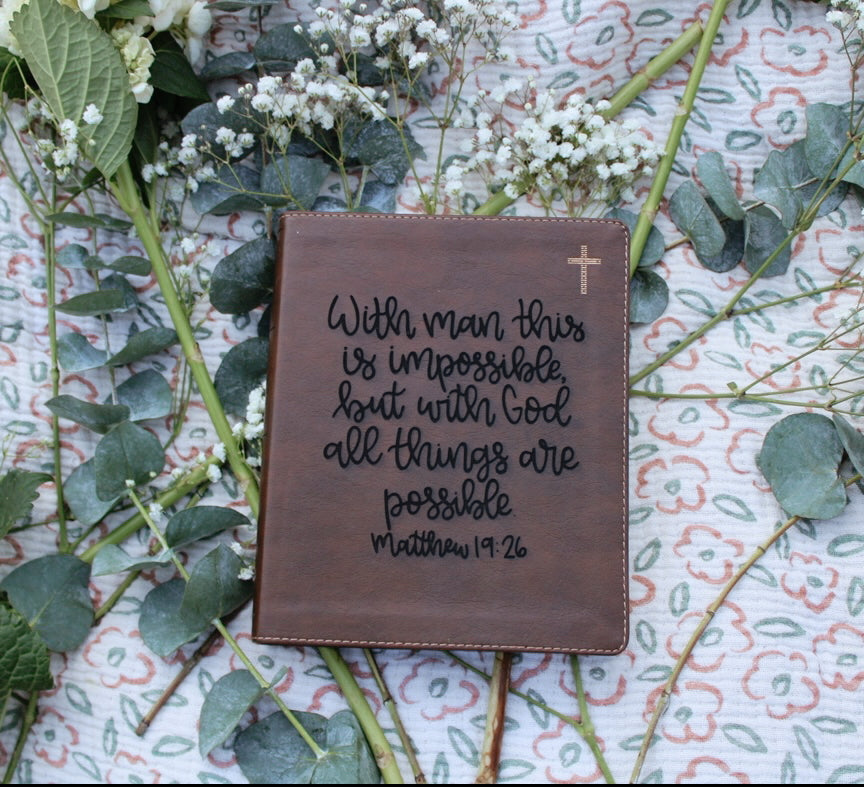 With man this
is impossible,
but with God
all things are
possible.
Matthew 19:26